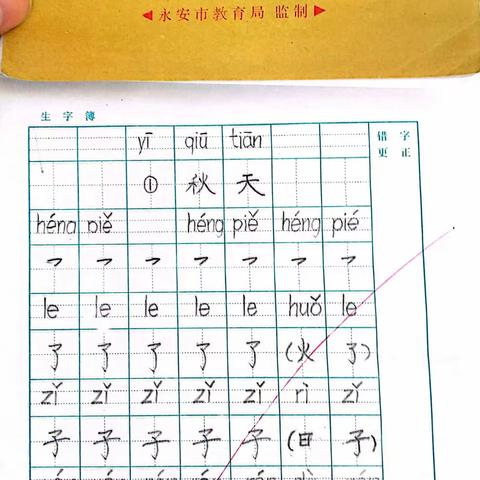 永安市教育局 监制
生字簿
错字
更正
yī qiū tiān
① 秋 天
héng piě héng piě héng pié
㇇ ㇇ ㇇ ㇇ ㇇ ㇇ ㇇
le le le le le huǒ le
了 了 了 了 了 (火 了)
zǐ zǐ zǐ zǐ zǐ rì zǐ
子 子 子 子 子 (日 子)